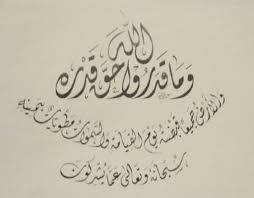 وما قدروا الله حق قدره
والأرض جميعا قبضته يوم القيامة والسموات مطويات بيمينه
سبحانه وتعالى عما يشركون